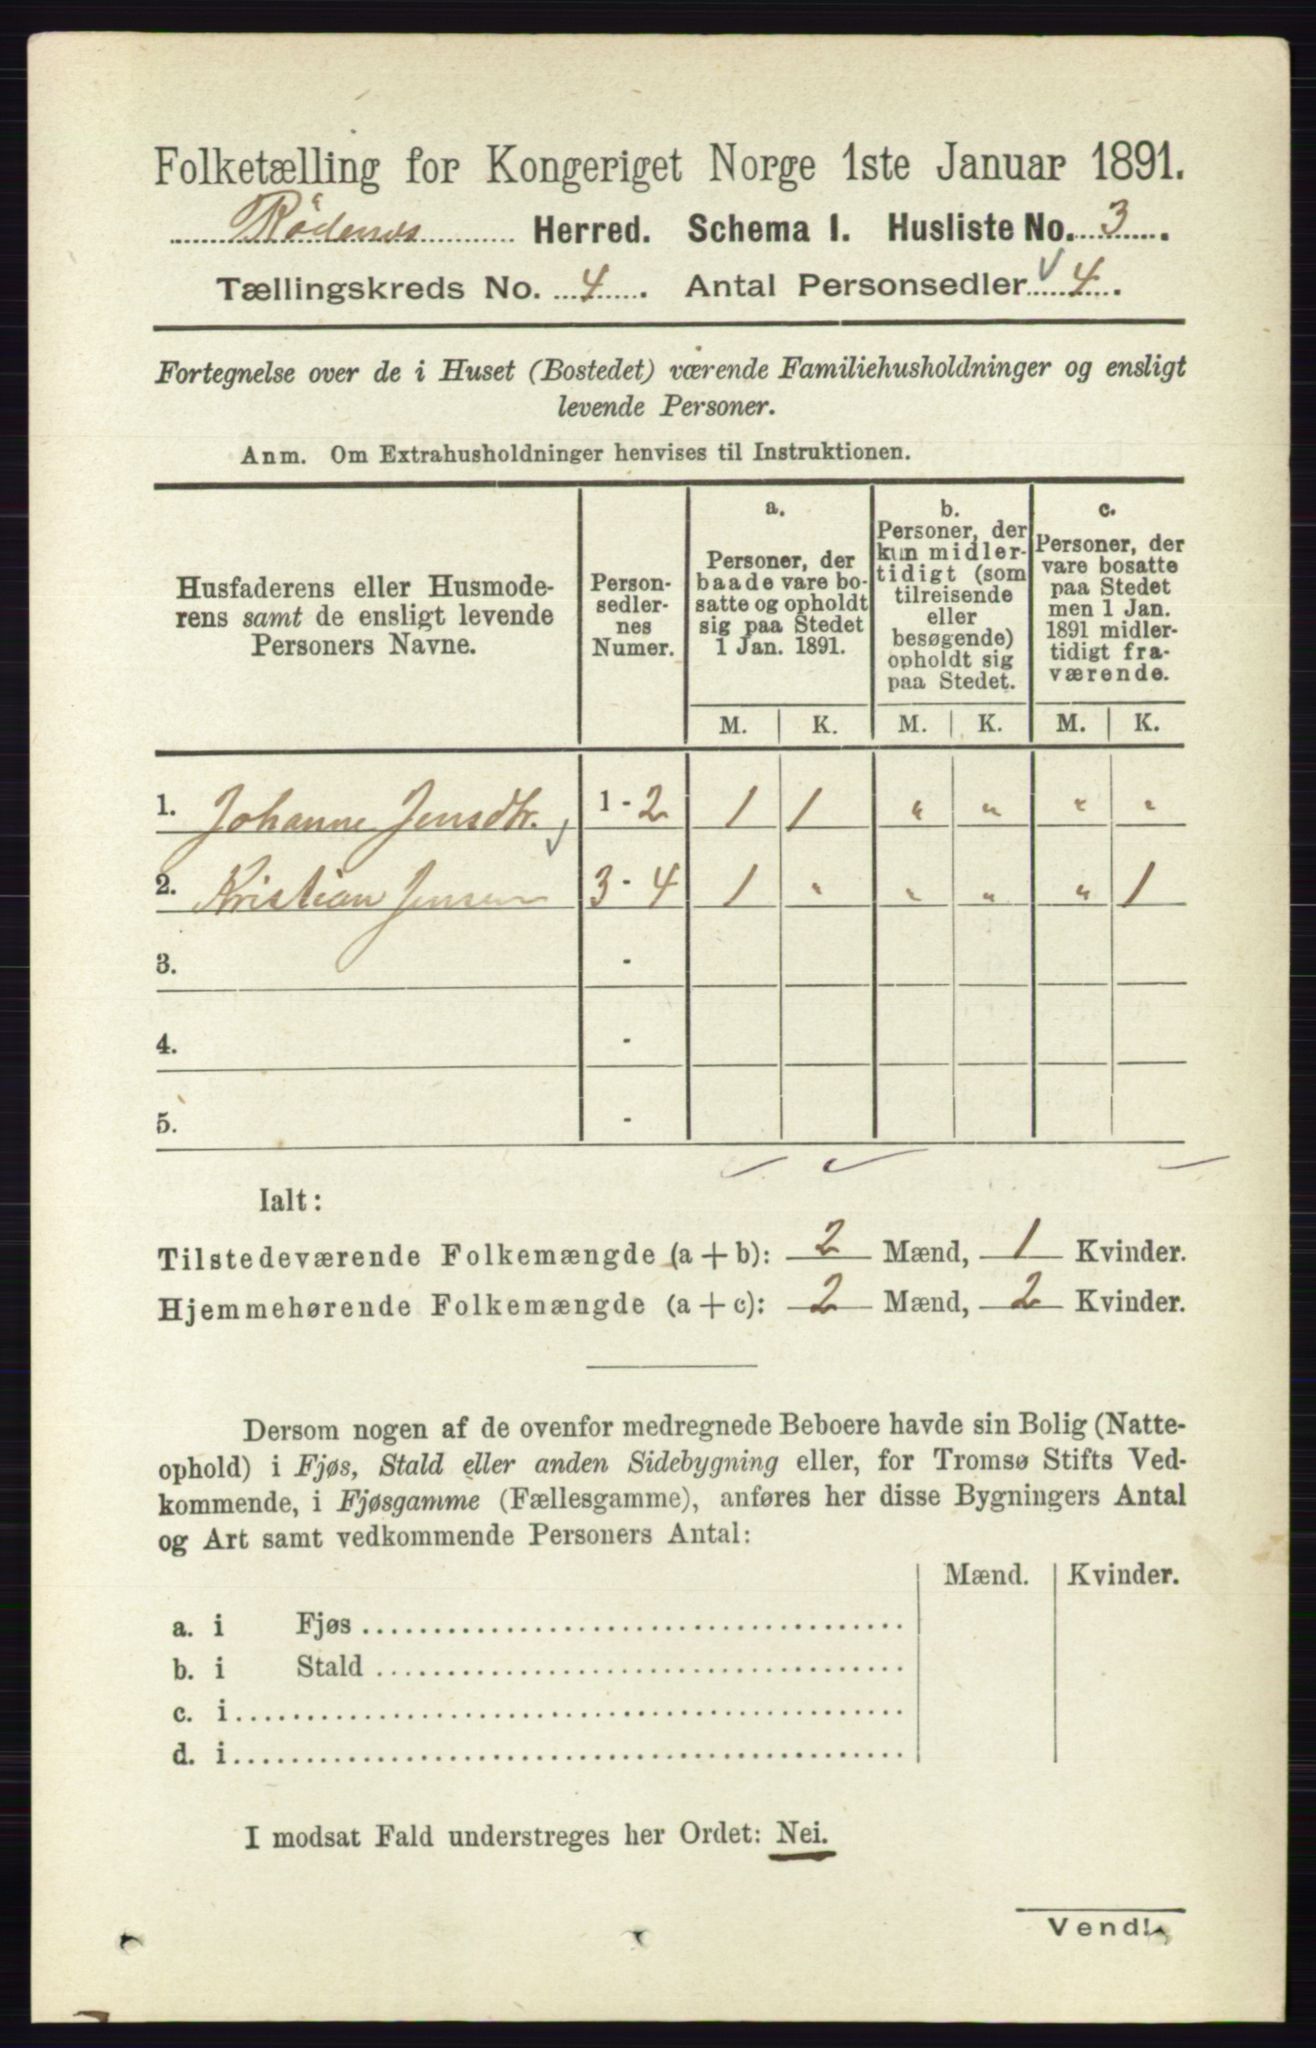 Folketælling for Kongeriget Norge 1ste Januar 1891.
Rödenes Herred. Schema I. Husliste No. 3.
Tællingskreds No. 4. Antal Personsedler 4.
Fortegnelse over de i Huset (Bostedet) værende Familiehusholdninger og ensligt
levende Personer.
Anm. Om Extrahusholdninger henvises til Instruktionen.
Husfaderens eller Husmode-
rens samt de ensligt levende
Personers Navne.
Person-
sedler-
nes
Numer.
a.
Personer, der
baade vare bo-
satte og opholdt
sig paa Stedet
1 Jan. 1891.
b.
Personer, der
kun midler-
tidigt (som
tilreisende
eller
besøgende)
opholdt sig
paa Stedet.
c.
Personer, der
vare bosatte
paa Stedet
men 1 Jan.
1891 midler-
tidigt fra-
værende.
M. K. M. K. M. K.
1. Johanne Jensdtr. 1 - 2 1 1 " " " "
2. Kristian Jensen 3 - 4 1 " " " " 1
3. -
4. -
5. -
Ialt:
Tilstedeværende Folkemængde (a + b): 2 Mænd, 1 Kvinder.
Hjemmehørende Folkemængde (a + c): 2 Mænd, 2 Kvinder.
Dersom nogen af de ovenfor medregnede Beboere havde sin Bolig (Natte-
ophold) i Fjøs, Stald eller anden Sidebygning eller, for Tromsø Stifts Ved-
kommende, i Fjøsgamme (Fællesgamme), anføres her disse Bygningers Antal
og Art samt vedkommende Personers Antal:
Mænd. Kvinder.
a. i Fjøs
b. i Stald
c. i
d. i
I modsat Fald understreges her Ordet: Nei.
Vend!